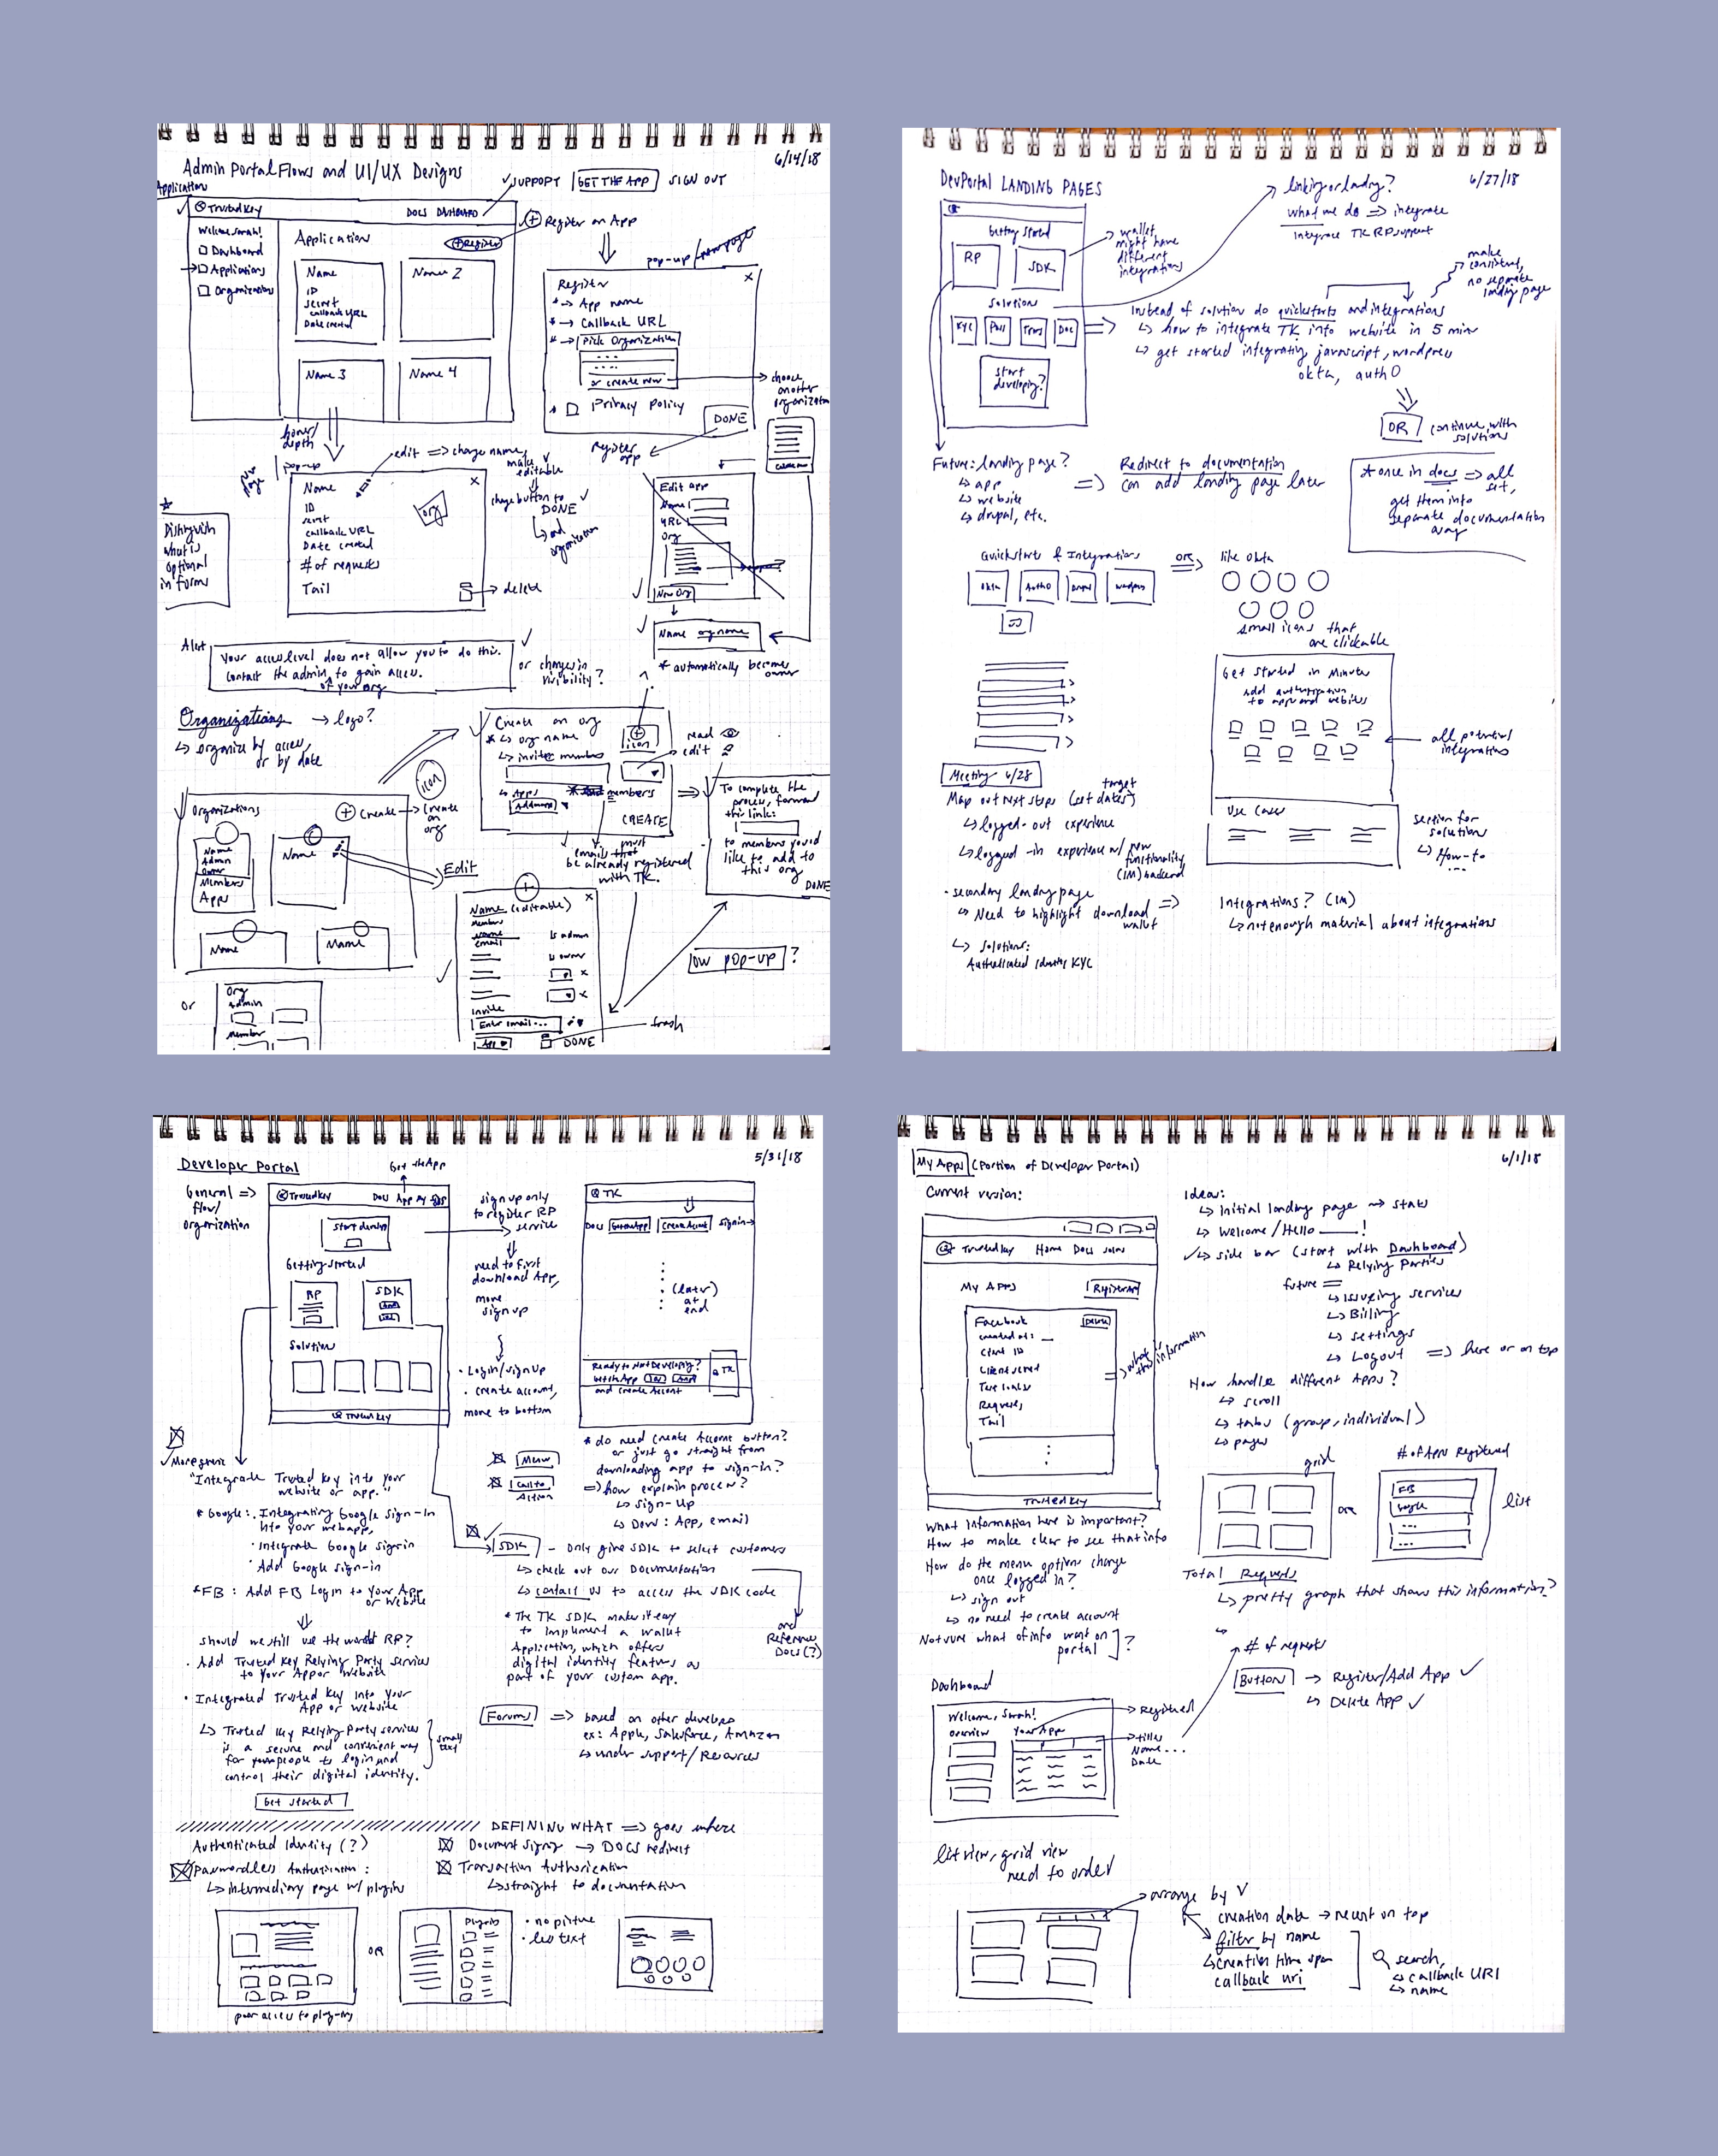 Admin Portal Flows and UI/UX Designs
6/14/18
Application
SUPPORT GET THE APP SIGN OUT
TrustedKey
DOCS DASHBOARD
Welcome, Sarah!
Dashboard
Applications
Organizations
Application
Register
Name
ID
secret
callback URL
Date created
Name 2
Name 3
Name 4
Register an App
pop-up/new page
Register
x
App name
Callback URL
Pick Organization
or create new
Privacy Policy
DONE
choose
another
organization
Register
app
hover/
depth
pop-up
edit => change name,
make
editable
change button to
DONE
and
organization
Name
ID
secret
callback URL
Date created
# of requests
Tail
org
x
delete
Distinguish
what is
optional
in forms
Edit app
Name
URL
Org
New Org
Name org name
* automatically becomes
owner
Alert
Your access level does not allow you to do this.
Contact the admin to gain access.
of your org
or changes in
visibility?
Organizations → logo?
organize by access,
or by date
Create an org
org name
invite members
Apps
members
CREATE
icon
read
edit
icon
Organizations
Create → Create
an
org
Name
Admin
owner
Members
Apps
Name
Name
Name
Edit
emails that must
be already registered
with TK.
To complete the
process, forward
this link:
to members you'd
like to add to
this org
DONE
Name (editable)
x
Members
name
email
is admin
is owner
x
x
Invite
Enter email...
App
DONE
trash
low pop-up?
or
Org
admin
member
DevPortal LANDING PAGES
6/27/18
linking or landing?
what we do => integrate
integrate TK RP support
Getting started
RP
SDK
wallet
might have
different
integrations
solution
KYC
Pass
Trans
Doc
start
developing?
make
consistent,
no separate
landing page
Instead of solution do quickstarts and integrations
how to integrate TK into website in 5 min
get started integrating javascript, wordpress
okta, auth0
OR continue with
solutions
Future: landing page?
app
website
drupal, etc.
=> Redirect to documentation
can add landing page later
* once in docs => all
set,
get them into
separate documentation
away
Quickstarts & Integrations
okta
Auth0
drupal
wordpress
or
like Okta
small icons that
are clickable
Get Started in Minutes
Add authentication
to apps and websites
all potential
integrations
Use Cases
section for
solutions
How-to
...
Meeting 6/28
Map out next steps (set target dates)
logged-out experience
logged-in experience w/ new
functionality,
(IM) backend
secondary landing page
Need to highlight download
wallet
solutions:
Authenticated Identity KYC
=>
Integrations? (IM)
not enough material about integrations
Developer Portal
5/31/18
Get the App
General =>
flow/
organization
TrustedKey
Docs App My Apps
start developing
Getting started
RP
SDK
Solution
TrustedKey
sign up only
to register RP
service
need to first
download App,
more
sign up
Login/sign up
create account,
move to bottom
TK
Docs Get the App Create Account Sign in
(later)
at
end
Ready to start Developing?
Get the App
and create Account
TK
More generic
"Integrate Trusted Key into your
website or app."
* Google: Integrating Google Sign-In
into your webapp,
Integrate Google Sign in
Add Google sign-in
* FB: Add FB Login to your App
or Website
Should we still use the word RP?
Add Trusted Key Relying Party services
to your App or Website
Integrated Trusted Key into your
App or Website
Trusted Key Relying Party services
is a secure and convenient way
for your people to login and
control their digital identity.
small
text
Get Started
Menu
Call to
Action
* do need Create Account button?
or just go straight from
downloading app to sign-in?
=> how explain process?
Sign-Up
Dow: App, email
SDK - Only give SDK to select customers
check out our Documentation
contact us to access the SDK code
* The TK SDK makes it easy
to implement a wallet
Application, which offers
digital identity features as
part of your custom app.
and
Reference
Docs(?)
Forums => based on other develops
ex: Apple, Salesforce, Amazon
under support/Resources
DEFINING WHAT => goes where
Authenticated Identity (?)
Passwordless Authentication:
intermediary page w/ plugins
Document Signing → DOCS redirect
Transaction Authorization
straight to documentation
OR
Plugins
no picture
less text
poor access to plug-ins
My Apps (Portion of Developer Portal)
6/1/18
Current version:
TrustedKey Home Docs
My Apps
Register App
Facebook
Delete
created at:
Client ID
Client secret
Requests
Tail
what is
this information
TrustedKey
Ideas:
Initial landing page → stats
Welcome/Hello ____!
side bar (start with Dashboard)
Relying Parties
future =
issuing services
Billing
settings
Logout => here or on top
How handle different Apps?
scroll
tabs (group, individual)
pages
grid
or
# of Apps Registered
FB
Google
...
list
What information here is important?
How to make clear to see that info
How do the menu options change
once logged in?
sign out
no need to create account
Not sure what of info want on
portal ?
Total Requests
pretty graph that shows this information?
# of requests
Button → Register/Add App
Delete App
Dashboard
Welcome, Sarah!
overview
Your App
Registered
titles
Name...
Date
list view, grid view
need to order
arrange by
creation date → recent on top
filter by name
creation time span
callback uri
search,
callback URI
name